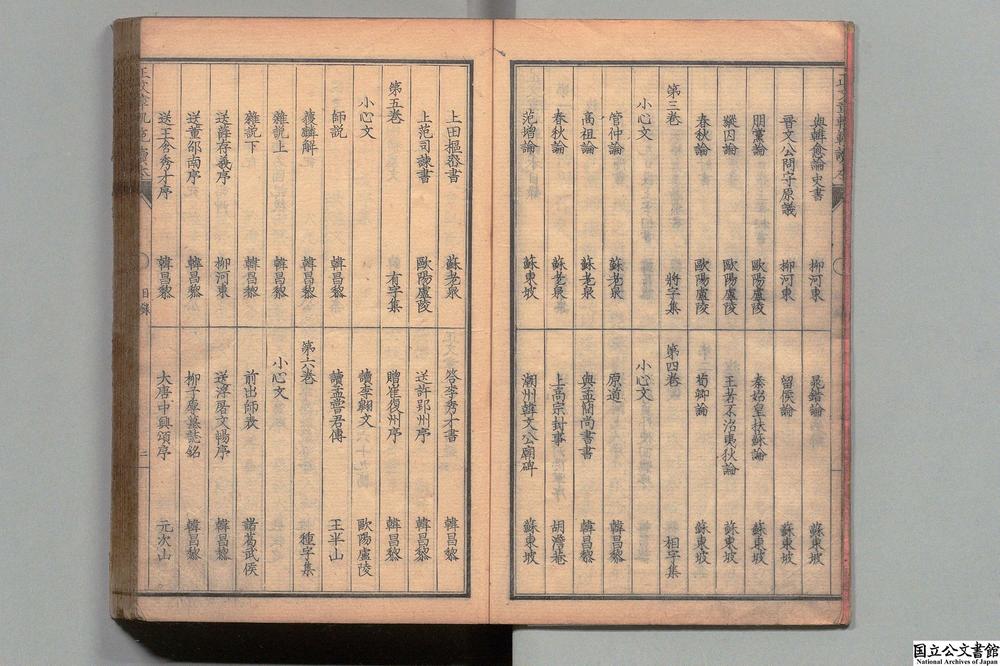 與韓愈論史書 柳河東
晉文公問守原議 柳河東
朋黨論 歐陽廬陵
縱囚論 歐陽廬陵
春秋論 歐陽廬陵
第三卷 將字集
小心文
管仲論 蘇老泉
高祖論 蘇老泉
春秋論 蘇老泉
范增論 蘇東坡
鼂錯論 蘇東坡
留侯論 蘇東坡
秦始皇扶蘇論 蘇東坡
王者不治夷狄論 蘇東坡
荀卿論 蘇東坡
第四卷 相字集
小心文
原道 韓昌黎
與孟簡尚書書 韓昌黎
上高宗封事 胡澹菴
潮州韓文公廟碑 蘇東坡
上田樞密書 蘇老泉
上范司諫書 歐陽廬陵
第五卷 有字集
小心文
師説 韓昌黎
獲麟解 韓昌黎
雜説上 韓昌黎
雜説下 韓昌黎
送薛存義序 柳河東
送董邵南序 韓昌黎
送王含秀才序 韓昌黎
答李秀才書 韓昌黎
送許郢州序 韓昌黎
贈崔復州序 韓昌黎
讀李翺文 歐陽廬陵
讀孟嘗君傳 王半山
第六卷 種字集
小心文
前出師表 諸葛武侯
送浮屠文暢序 韓昌黎
柳子厚墓誌銘 韓昌黎
大唐中興頌序 元次山
目錄 二
国立公文書館
National Archives of Japan